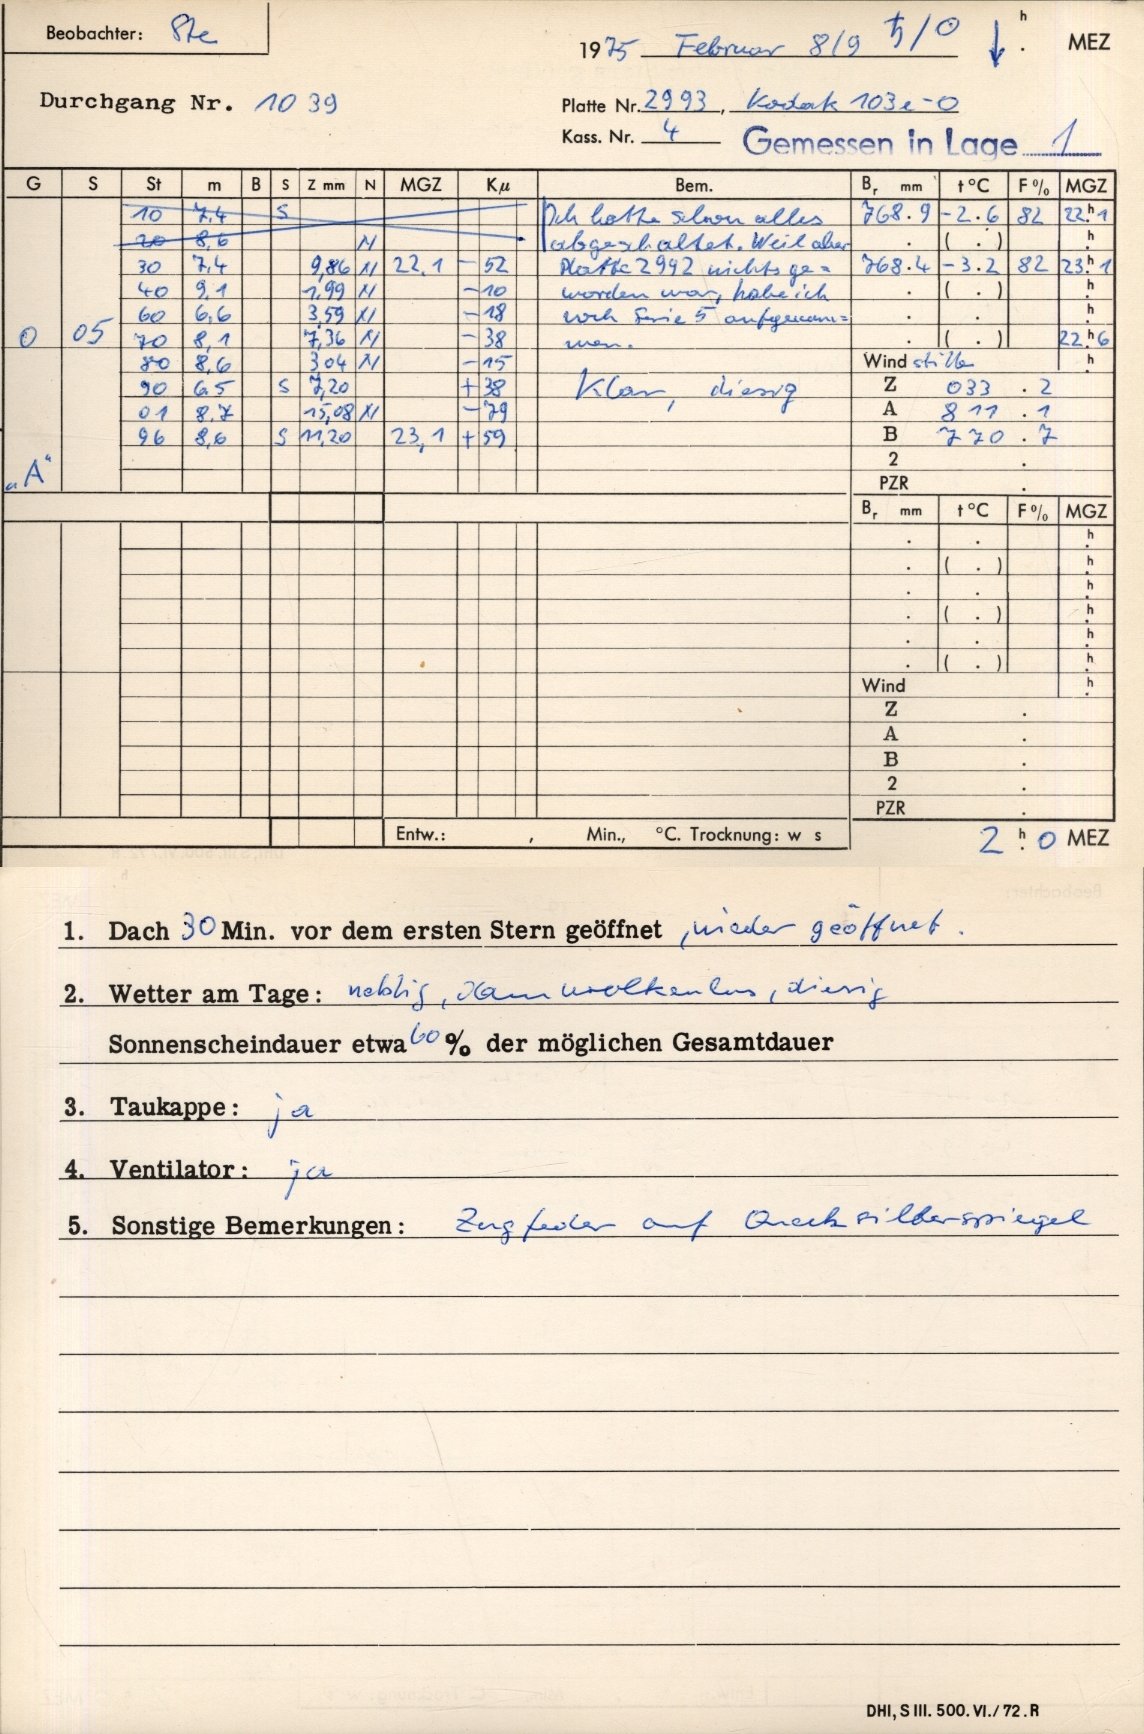 Beobachter: Ste
1975 Februar 8/9 ♄/O ↓ h . MEZ
Durchgang Nr. 1039
Platte Nr. 2993, Kodak 103a-O
Kass. Nr. 4 Gemessen in Lage 1
G S St m B S Z mm N MGZ Kμ Bem. Br mm t °C F % MGZ
10 7,4 S Ich hatte schon alles 768.9 -2.6 82 22h.1
20 8,6 N abgeschaltet. Weil aber . ( . ) h
30 7,4 9,86 N 22,1 -52 Platte 2992 nichts ge= 768.4 -3.2 82 23h.1
40 9,1 1,99 N -10 worden war, habe ich . ( . ) h
60 6,6 3,59 N -18 noch Serie 5 aufgenom= . . h
O 05 70 8,1 7,36 N -38 men. . ( . ) 22h.6
80 8,6 3,04 N -15 Wind stille h
90 6,5 S 7,20 +38 Klar, diesig Z 033.2
01 8,7 15,08 N -79 A 811.1
96 8,6 S 11,20 23,1 +59 B 770.7
„A“ 2 .
PZR .
Br mm t °C F % MGZ
. . h
. ( . ) h
. . h
. ( . ) h
. . h
. ( . ) h
Wind h
Z .
A .
B .
2 .
PZR .
Entw.: , Min., °C. Trocknung: w s 2h.0 MEZ
1. Dach 30 Min. vor dem ersten Stern geöffnet, wieder geöffnet.
2. Wetter am Tage: neblig, dann wolkenlos, diesig
Sonnenscheindauer etwa 60 % der möglichen Gesamtdauer
3. Taukappe: ja
4. Ventilator: ja
5. Sonstige Bemerkungen: Zugfeder auf Quecksilberspiegel
DHI, S III. 500. VI./72. R